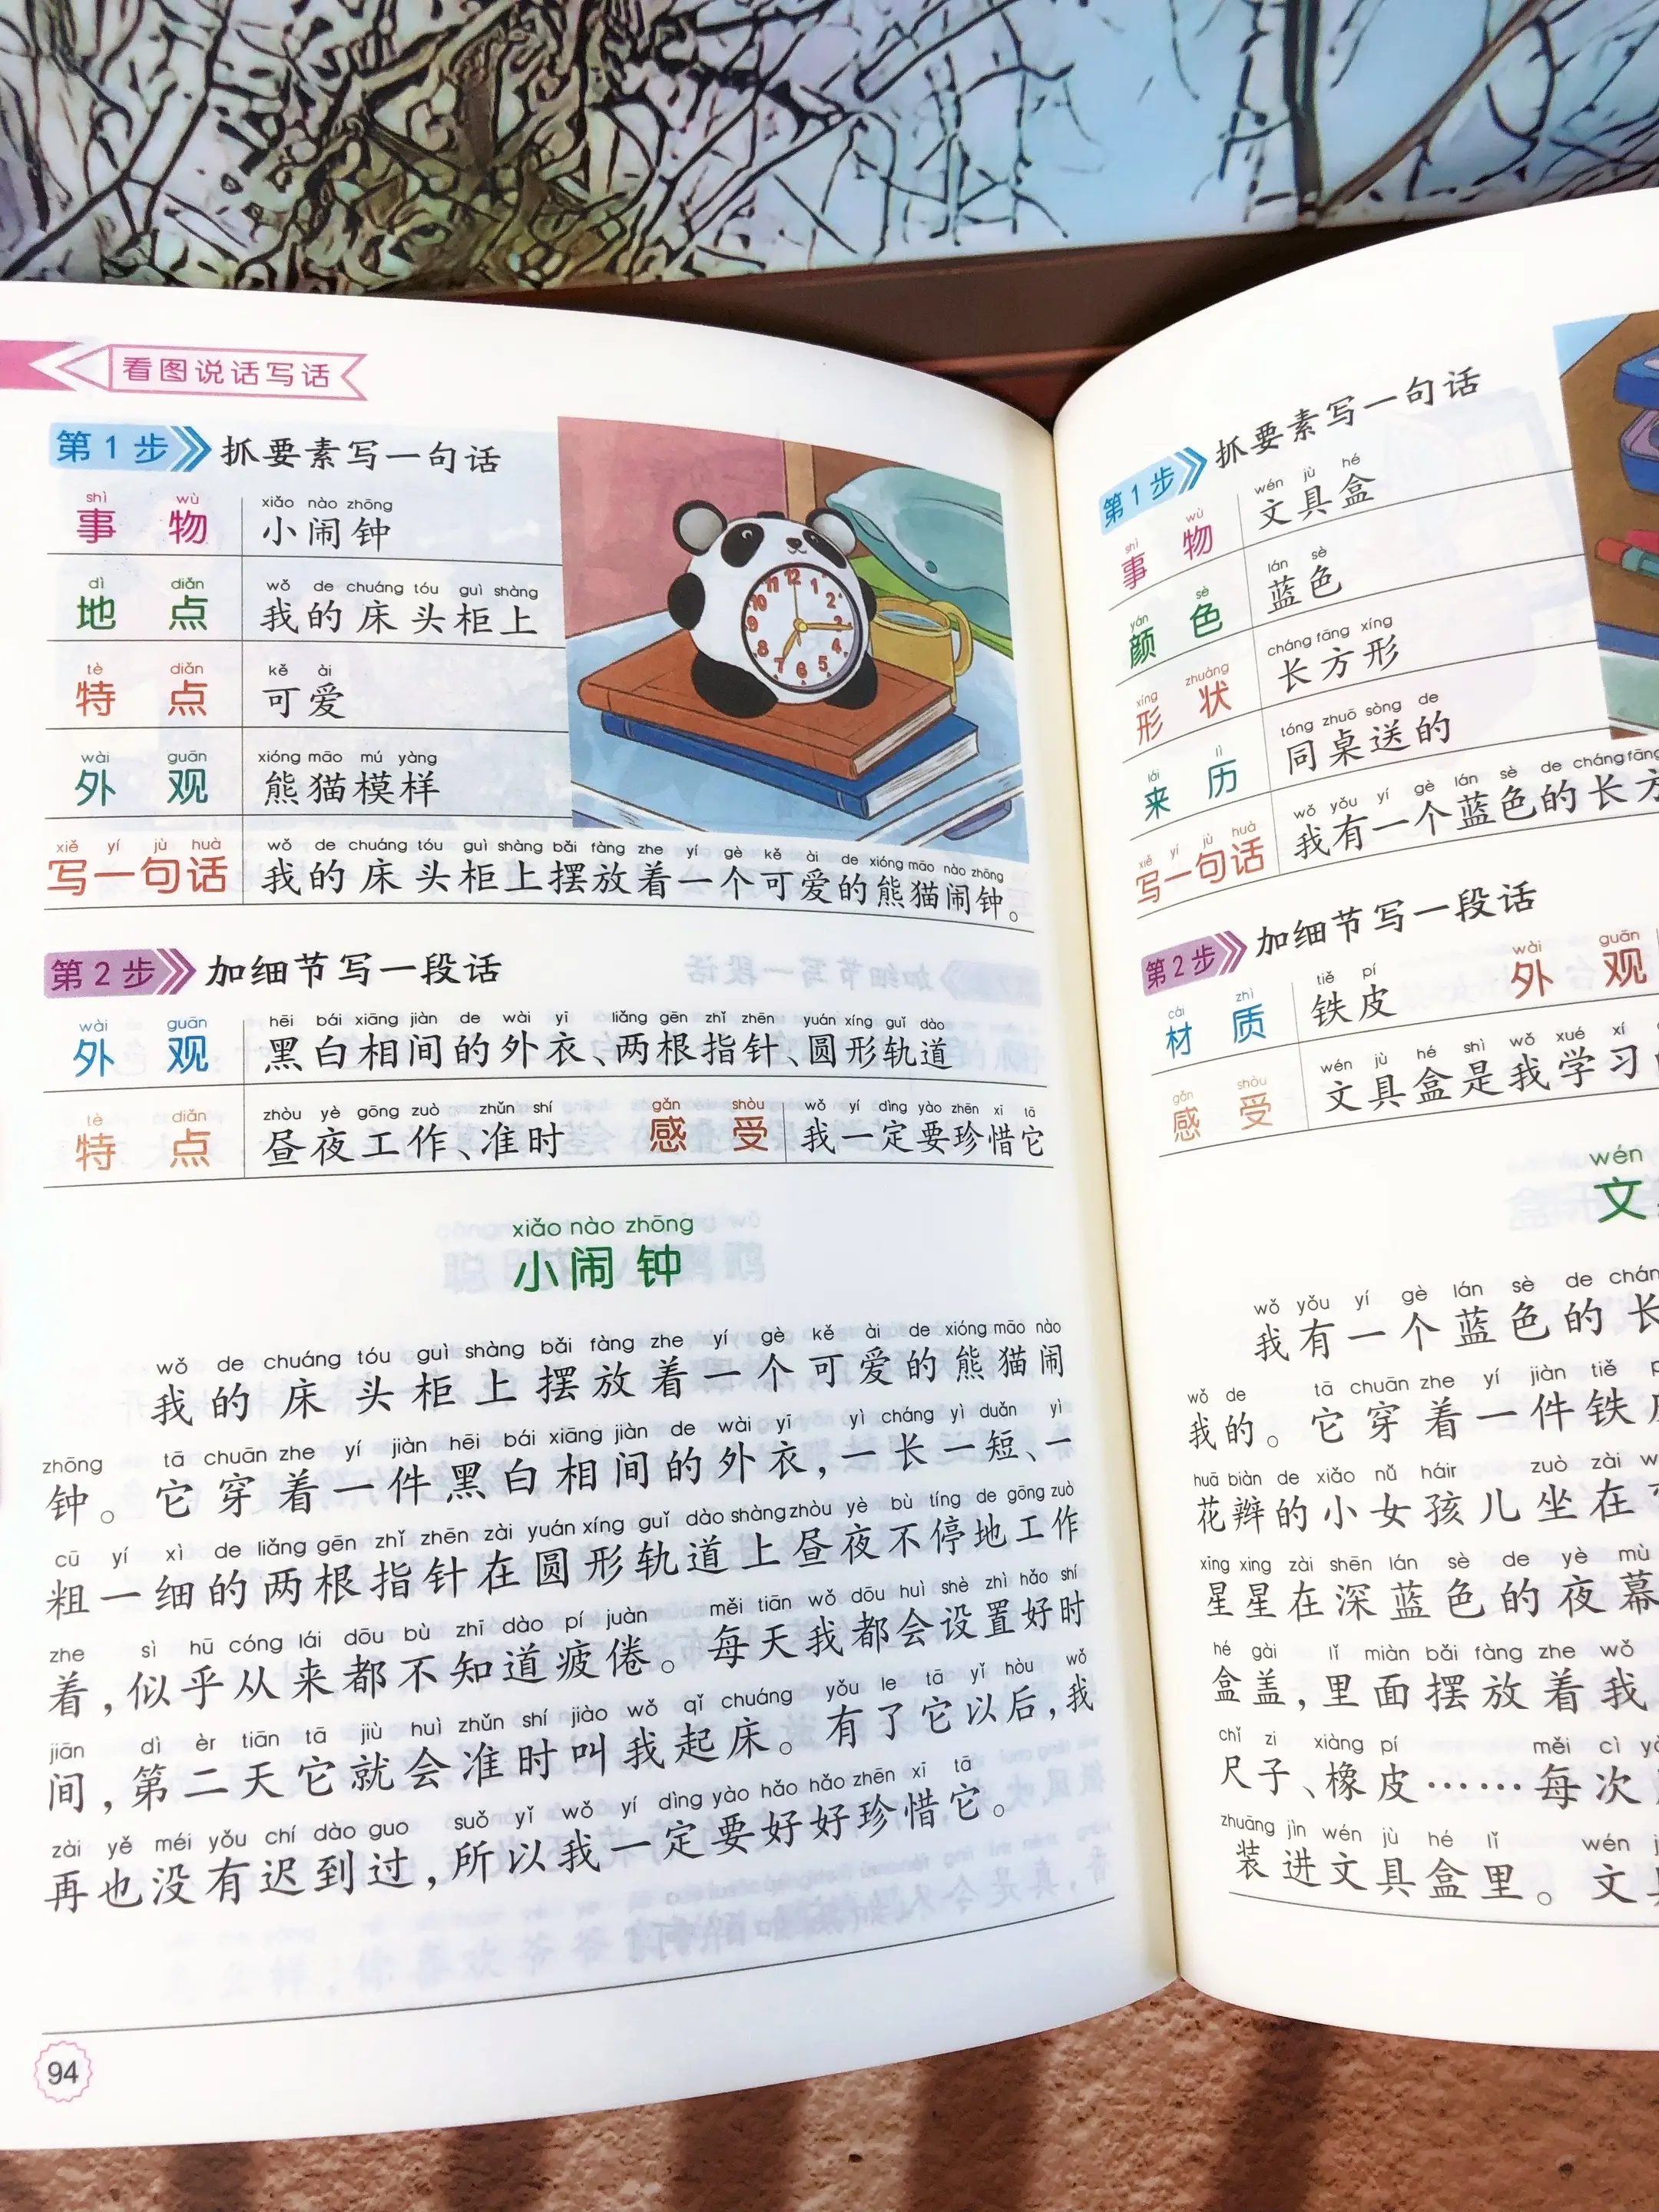 看图说话写话
第1步 抓要素写一句话
shì wù xiǎo nào zhōng
事物 小闹钟
dì diǎn wǒ de chuáng tóu guì shàng
地点 我的床头柜上
tè diǎn kě ài
特点 可爱
wài guān xióng māo mú yàng
外观 熊猫模样
xiě yí jù huà wǒ de chuáng tóu guì shàng bǎi fàng zhe yí gè kě ài de xióng māo nào zhōng
写一句话 我的床头柜上摆放着一个可爱的熊猫闹钟。
第2步 加细节写一段话
wài guān hēi bái xiāng jiàn de wài yī liǎng gēn zhǐ zhēn yuán xíng guǐ dào
外观 黑白相间的外衣、两根指针、圆形轨道
tè diǎn zhòu yè gōng zuò zhǔn shí gǎn shòu wǒ yí dìng yào zhēn xī tā
特点 昼夜工作、准时 感受 我一定要珍惜它
xiǎo nào zhōng
小闹钟
wǒ de chuáng tóu guì shàng bǎi fàng zhe yí gè kě ài de xióng māo nào
我的床头柜上摆放着一个可爱的熊猫闹
zhōng tā chuān zhe yí jiàn hēi bái xiāng jiàn de wài yī yì cháng yì duǎn yì
钟。它穿着一件黑白相间的外衣,一长一短、一
cū yí xì de liǎng gēn zhǐ zhēn zài yuán xíng guǐ dào shàng zhòu yè bù tíng de gōng zuò
粗一细的两根指针在圆形轨道上昼夜不停地工作
zhe sì hū cóng lái dōu bù zhī dào pí juàn měi tiān wǒ dōu huì shè zhì hǎo shí
着,似乎从来都不知道疲倦。每天我都会设置好时
jiān dì èr tiān tā jiù huì zhǔn shí jiào wǒ qǐ chuáng yǒu le tā yǐ hòu wǒ
间,第二天它就会准时叫我起床。有了它以后,我
zài yě méi yǒu chí dào guo suǒ yǐ wǒ yí dìng yào hǎo hǎo zhēn xī tā
再也没有迟到过,所以我一定要好好珍惜它。
94
第1步 抓要素写一句话
shì wù wén jù hé
事物 文具盒
yán sè lán sè
颜色 蓝色
xíng zhuàng cháng fāng xíng
形状 长方形
lái lì tóng zhuō sòng de
来历 同桌送的
xiě yí jù huà wǒ yǒu yí gè lán sè de cháng fāng
写一句话 我有一个蓝色的长方
第2步 加细节写一段话
cái zhì tiě pí wài guān
材质 铁皮 外观
gǎn shòu wén jù hé shì wǒ xué xí
感受 文具盒是我学习
wén
文
wǒ yǒu yí gè lán sè de
我有一个蓝色的长
wǒ de tā chuān zhe yí jiàn tiě
我的。它穿着一件铁
huā biàn de xiǎo nǚ háir zuò zài
花瓣的小女孩儿坐在
xīng xing zài shēn lán sè de yè mù
星星在深蓝色的夜幕
hé gài lǐ miàn bǎi fàng zhe wǒ
盒盖,里面摆放着我
chǐ zi xiàng pí měi cì
尺子、橡皮……每次
zhuāng jìn wén jù hé lǐ wén
装进文具盒里。文